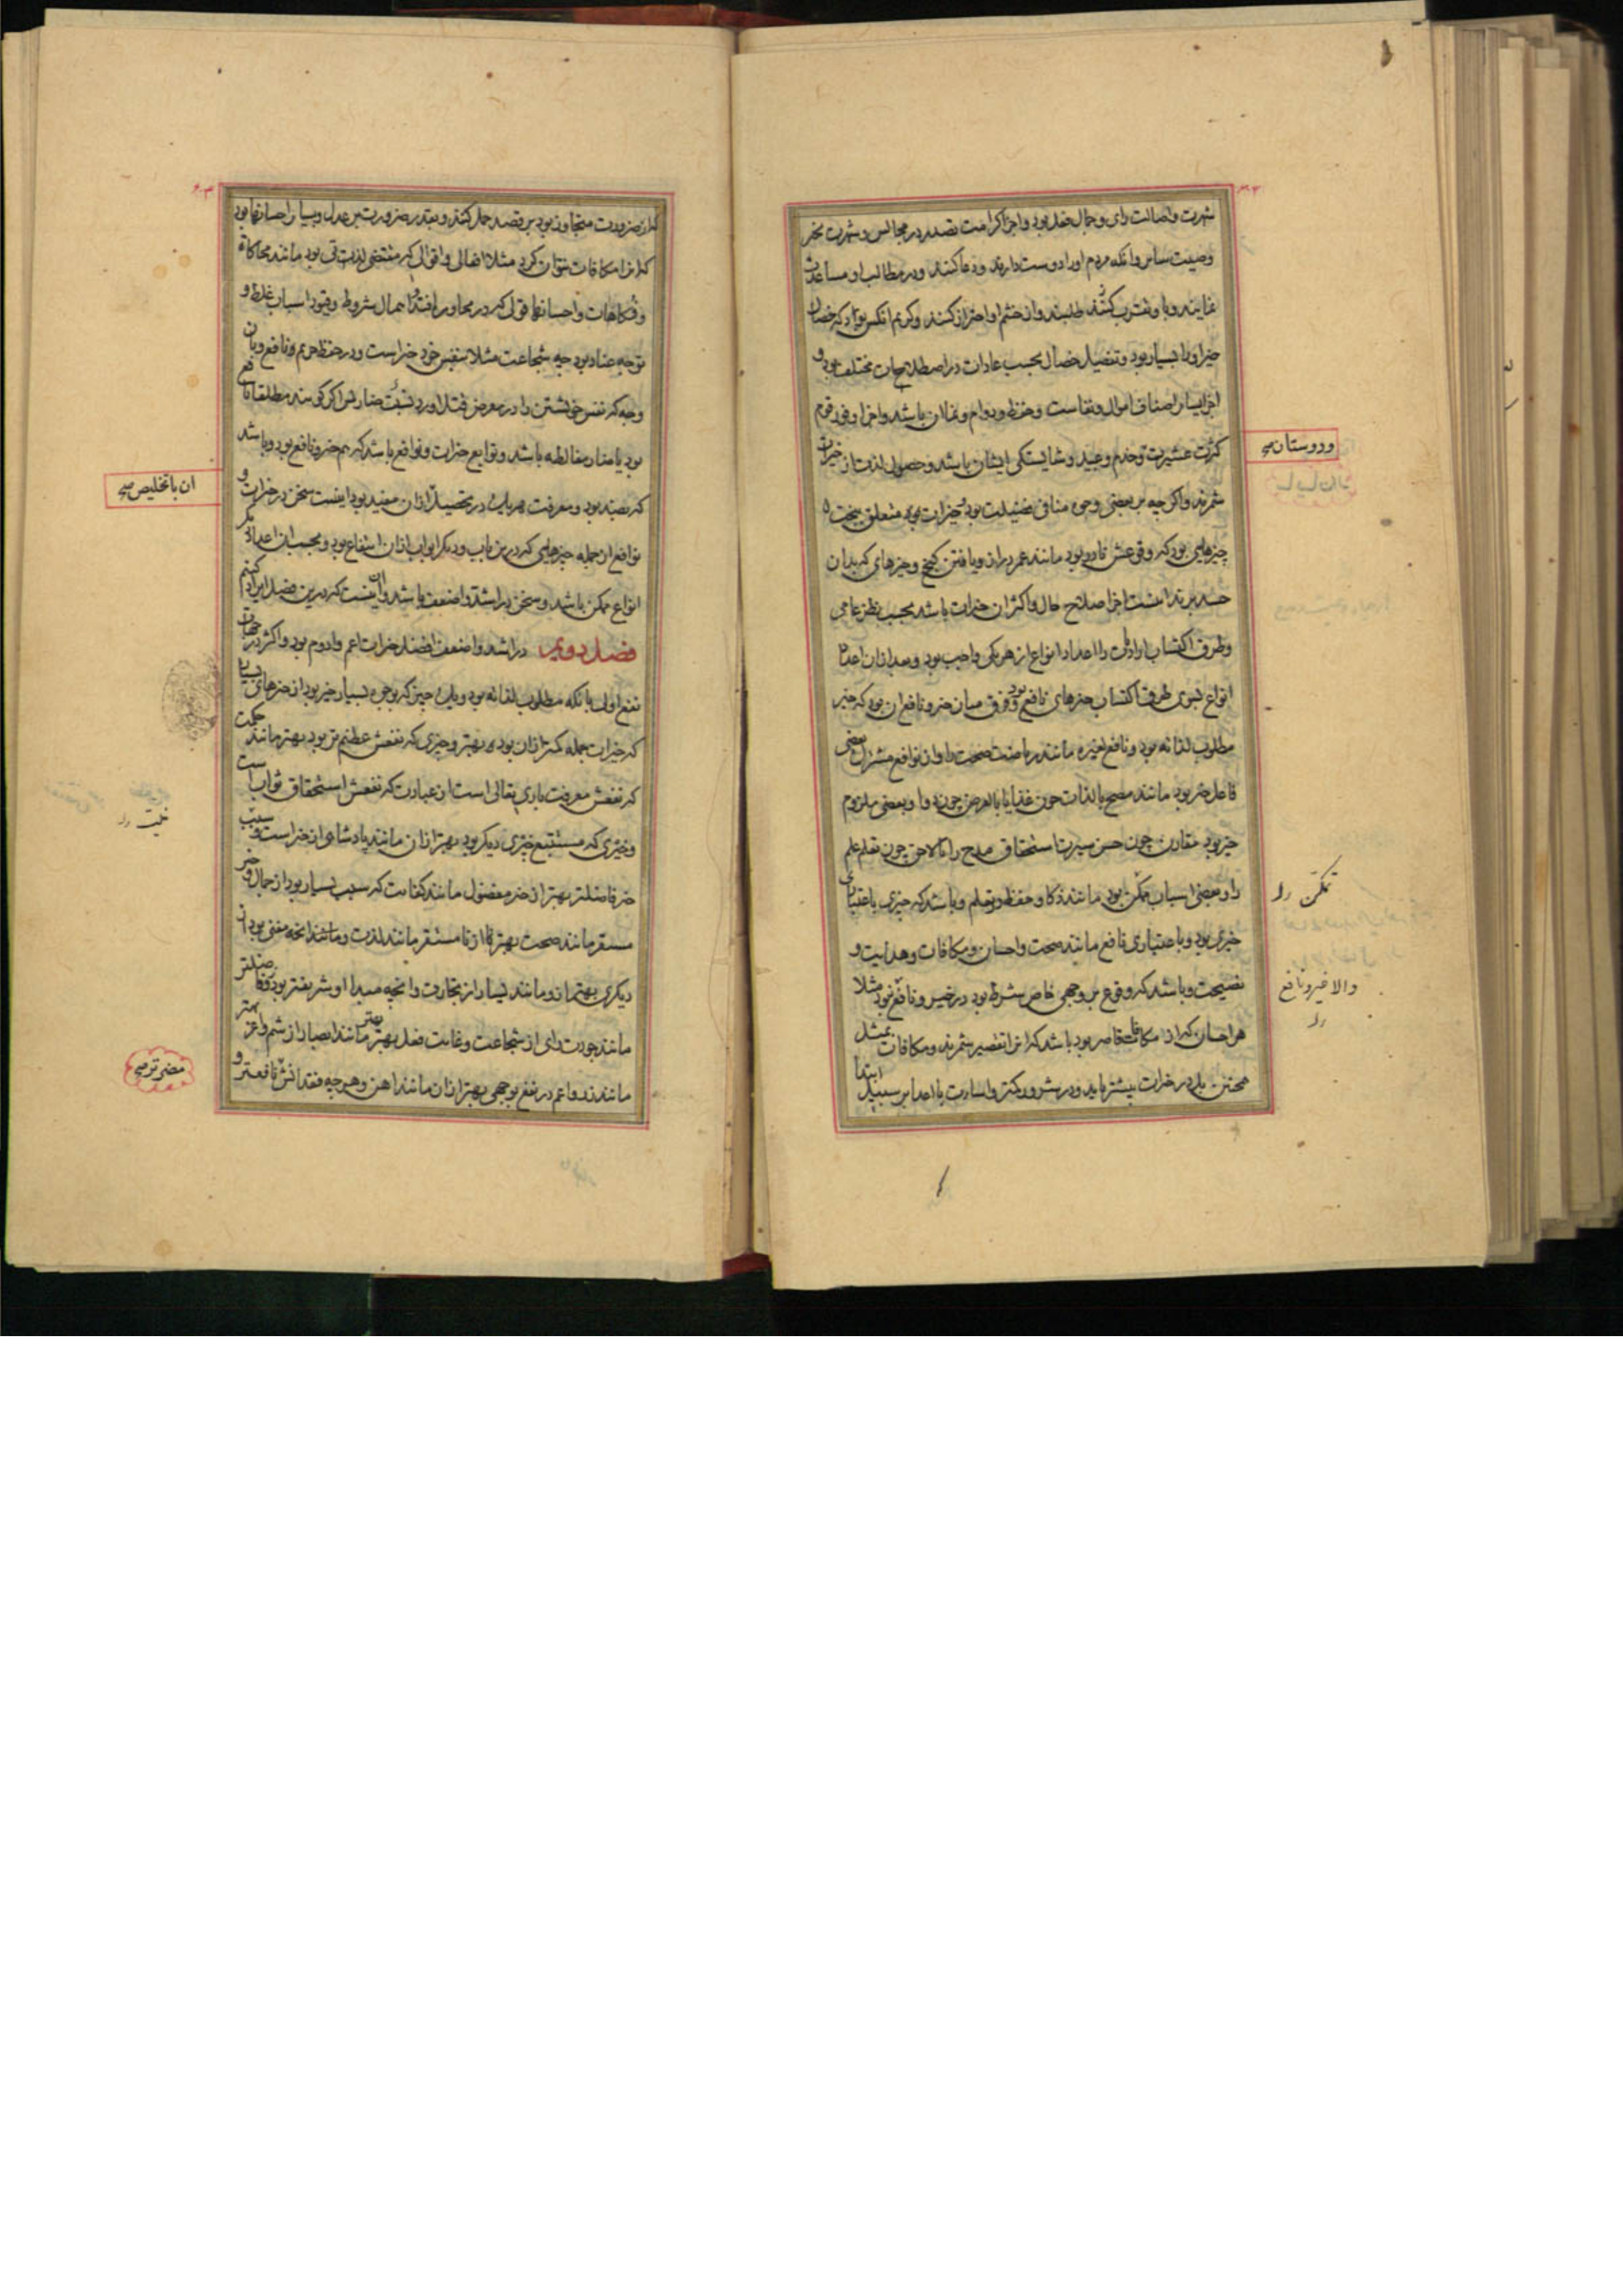 شهرت واصالت رای وجمال عقل بود واجزا کرامت تصدر در مجالس وشهرت بخیر
وصیت سایر وانکه مردم اورا دوست دارند ودعا کنند ودر مطالب او مساعدت
نمایند وبا وتقرب کنند طلبند واز خشم او احتراز کنند وکریم انکس بود که خصال
خیر اورا بسیار بود وتفصیل خصال بحسب عادات در اصطلاحات مختلف بود و
اجزا یسار اصناف اموال ونفاست وحفظ ودوام ونمای ان باشد واجزا وفور قوم
کثرت عشیرت وخدم وعبید وشایستکی ایشان باشد وحصول لذت از خیرات
شمرند واکر چه بر بعضی وجوه منافی فضیلت بود وخیرات متعلق ببخت
چیزهایی بود که وقوعش نادر بود مانند عمر دراز ویافتن کنج وچیزهای که بدان
حسد برند اینست اجزا صلاح حال واکثر ان خیرات باشد بحسب نظر عامی
وطرق اکتساب ارادیات را اعداد انواع از هر یکی واجب بود وبعد از ان اعداد
انواع نسوی طرق اکتساب چیزهای نافع بود وفرق میان خیر ونافع ان بود که خیر
مطلوب لذاته بود ونافع لغیره مانند ریاضت صحت را واز نوافع بعضی
فاعل خیر بود مانند مصحح بالذات چون غذا یا بالعرض چون دوا وبعضی ملزوم
خیر بود مقارن چون حسن سیرت استحقاق مدح را یا لاحق چون تعلم علم
را وبعضی اسباب ممکن بود مانند ذکا وحفظ وتعلم وباشد که چیزی باعتباری
خیر بود وباعتباری نافع مانند صحت واحسان ومکافات وهدایت و
نصیحت وباشد که وقوع بر وجهی خاص شرط بود در خیر ونافع نبود مثلا
هر احسان که از مکافات قاصر بود باشد که انرا تقصیر شمرند ومکافات بمثل
محض بل در خیرات بیشتر باید ودر شرور کمتر واساءت با اعدا بر سبیل ابتدا
ودوستان صح
تمکن
والا خیر ونافع
که از ضرورت متجاوز بود بر قصد حمل کنند وبقدر ضرورت بر عدل وبسیار احسانها بود
که انرا مکافات نتوان کرد مثلا افعالی واقوالی که مقتضی لذت بود مانند محاکاة
وفکاهات واحسانها قولی که در محاوره افتد اهمال شروط وقیود اسباب غلط و
توجه عناد بود چه شجاعت مثلا بنفس خود خیر است ودر حفظ حریم نافع وبان
وجه که نفس خویشتن را در معرض قتل اورد ضار پس اکر کویند مطلقا نافع
بود یا ضار مغالطه باشد وتوابع خیرات ونوافع باشد که هم خیر ونافع بود وباشد
که بضد بود ومعرفت هر یک در تحصیل ازان مفید بود اینست سخن در خیرات و
نوافع از جمله چیزهایی که درین باب ودیکر ابواب ازان انتفاع بود وبحسب ان اعداد دیکر
انواع ممکن باشد وسخن در اشد واضعف باشد وان اینست که درین فصل ایراد کنیم
فصل دویم در اشد واضعف افضل خیرات اعم وادوم بود واکثر در جهات
نفع اولی بانکه مطلوب لذاته بود ویک چیز که بوجوه بسیار خیر بود از چیزهای بسیار
که خیرات جمله کمتر ازان بود بهتر وچیزی که نفعش عظیم تر بود بهتر مانند حکمت
که نفعش معرفت باری تعالی است از عبادت که نفعش استحقاق ثواب است
وخیری که مستتبع خیری دیکر بود بهتر ازان مانند پادشاهی از خیر است وسبب
خیر فاضلتر بهتر از خیر مفضول مانند کفایت که سبب یسار بود از جمال وخیر
مستقر مانند صحت بهتر از نا مستقر مانند لذت وانچه مغنی بود از
دیکری بهتر ازو مانند یسار از تجارت وانچه مبدا او شریفتر بود فاضلتر
مانند جودت رای از شجاعت وغایت فعل بهتر بهتر مانند ابصار از شم واعز بهتر
مانند زر واعم در نفع بوجهی بهتر ازان مانند اهن وهر چه فقدانش نافعتر و
ان با تخلیص صح
مضر تر صح